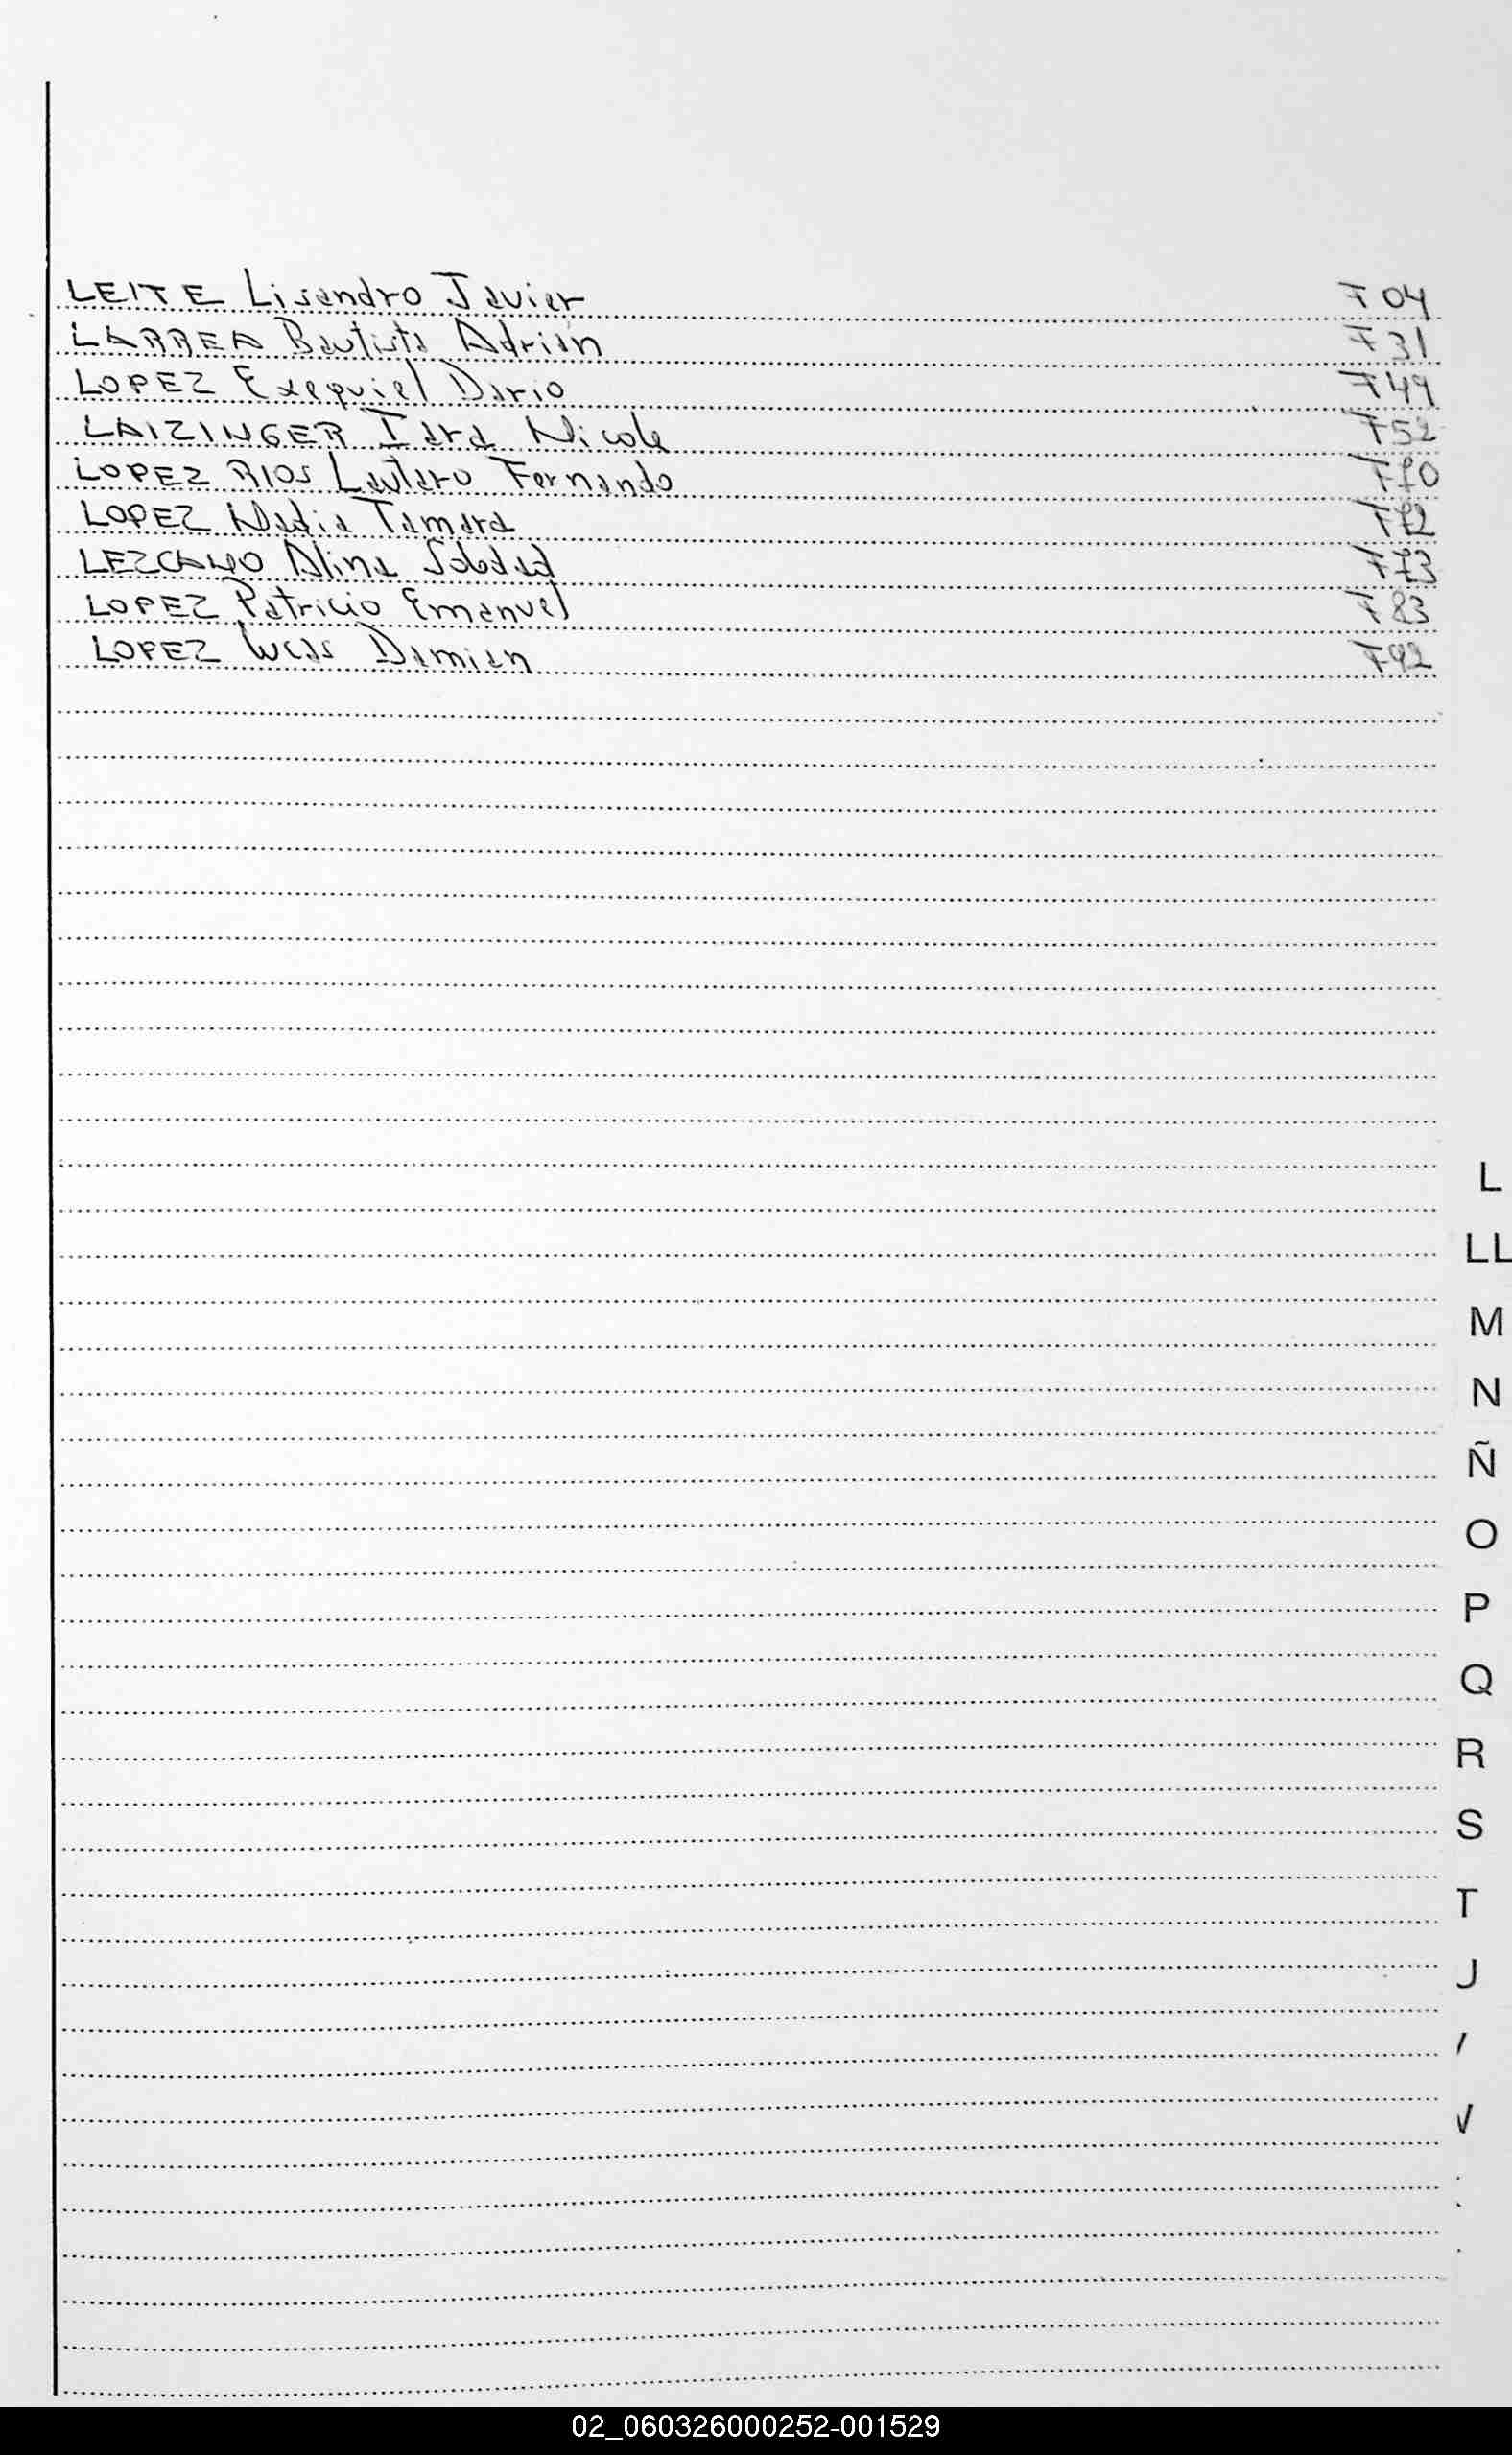 LEITE Lisandro Javier F 04
LARREA Bautista Adrián F 31
LOPEZ Exequiel Dario F 49
LAIZINGER Iara Nicole F52
LOPEZ RIOS Lautaro Fernando F70
LOPEZ Nadia Tamara F72
LEZCANO Alina Soledad F73
LOPEZ Patricio Emanuel F 83
LOPEZ Lucas Damian F92
L
LL
M
N
Ñ
O
P
Q
R
S
T
J
02_060326000252-001529